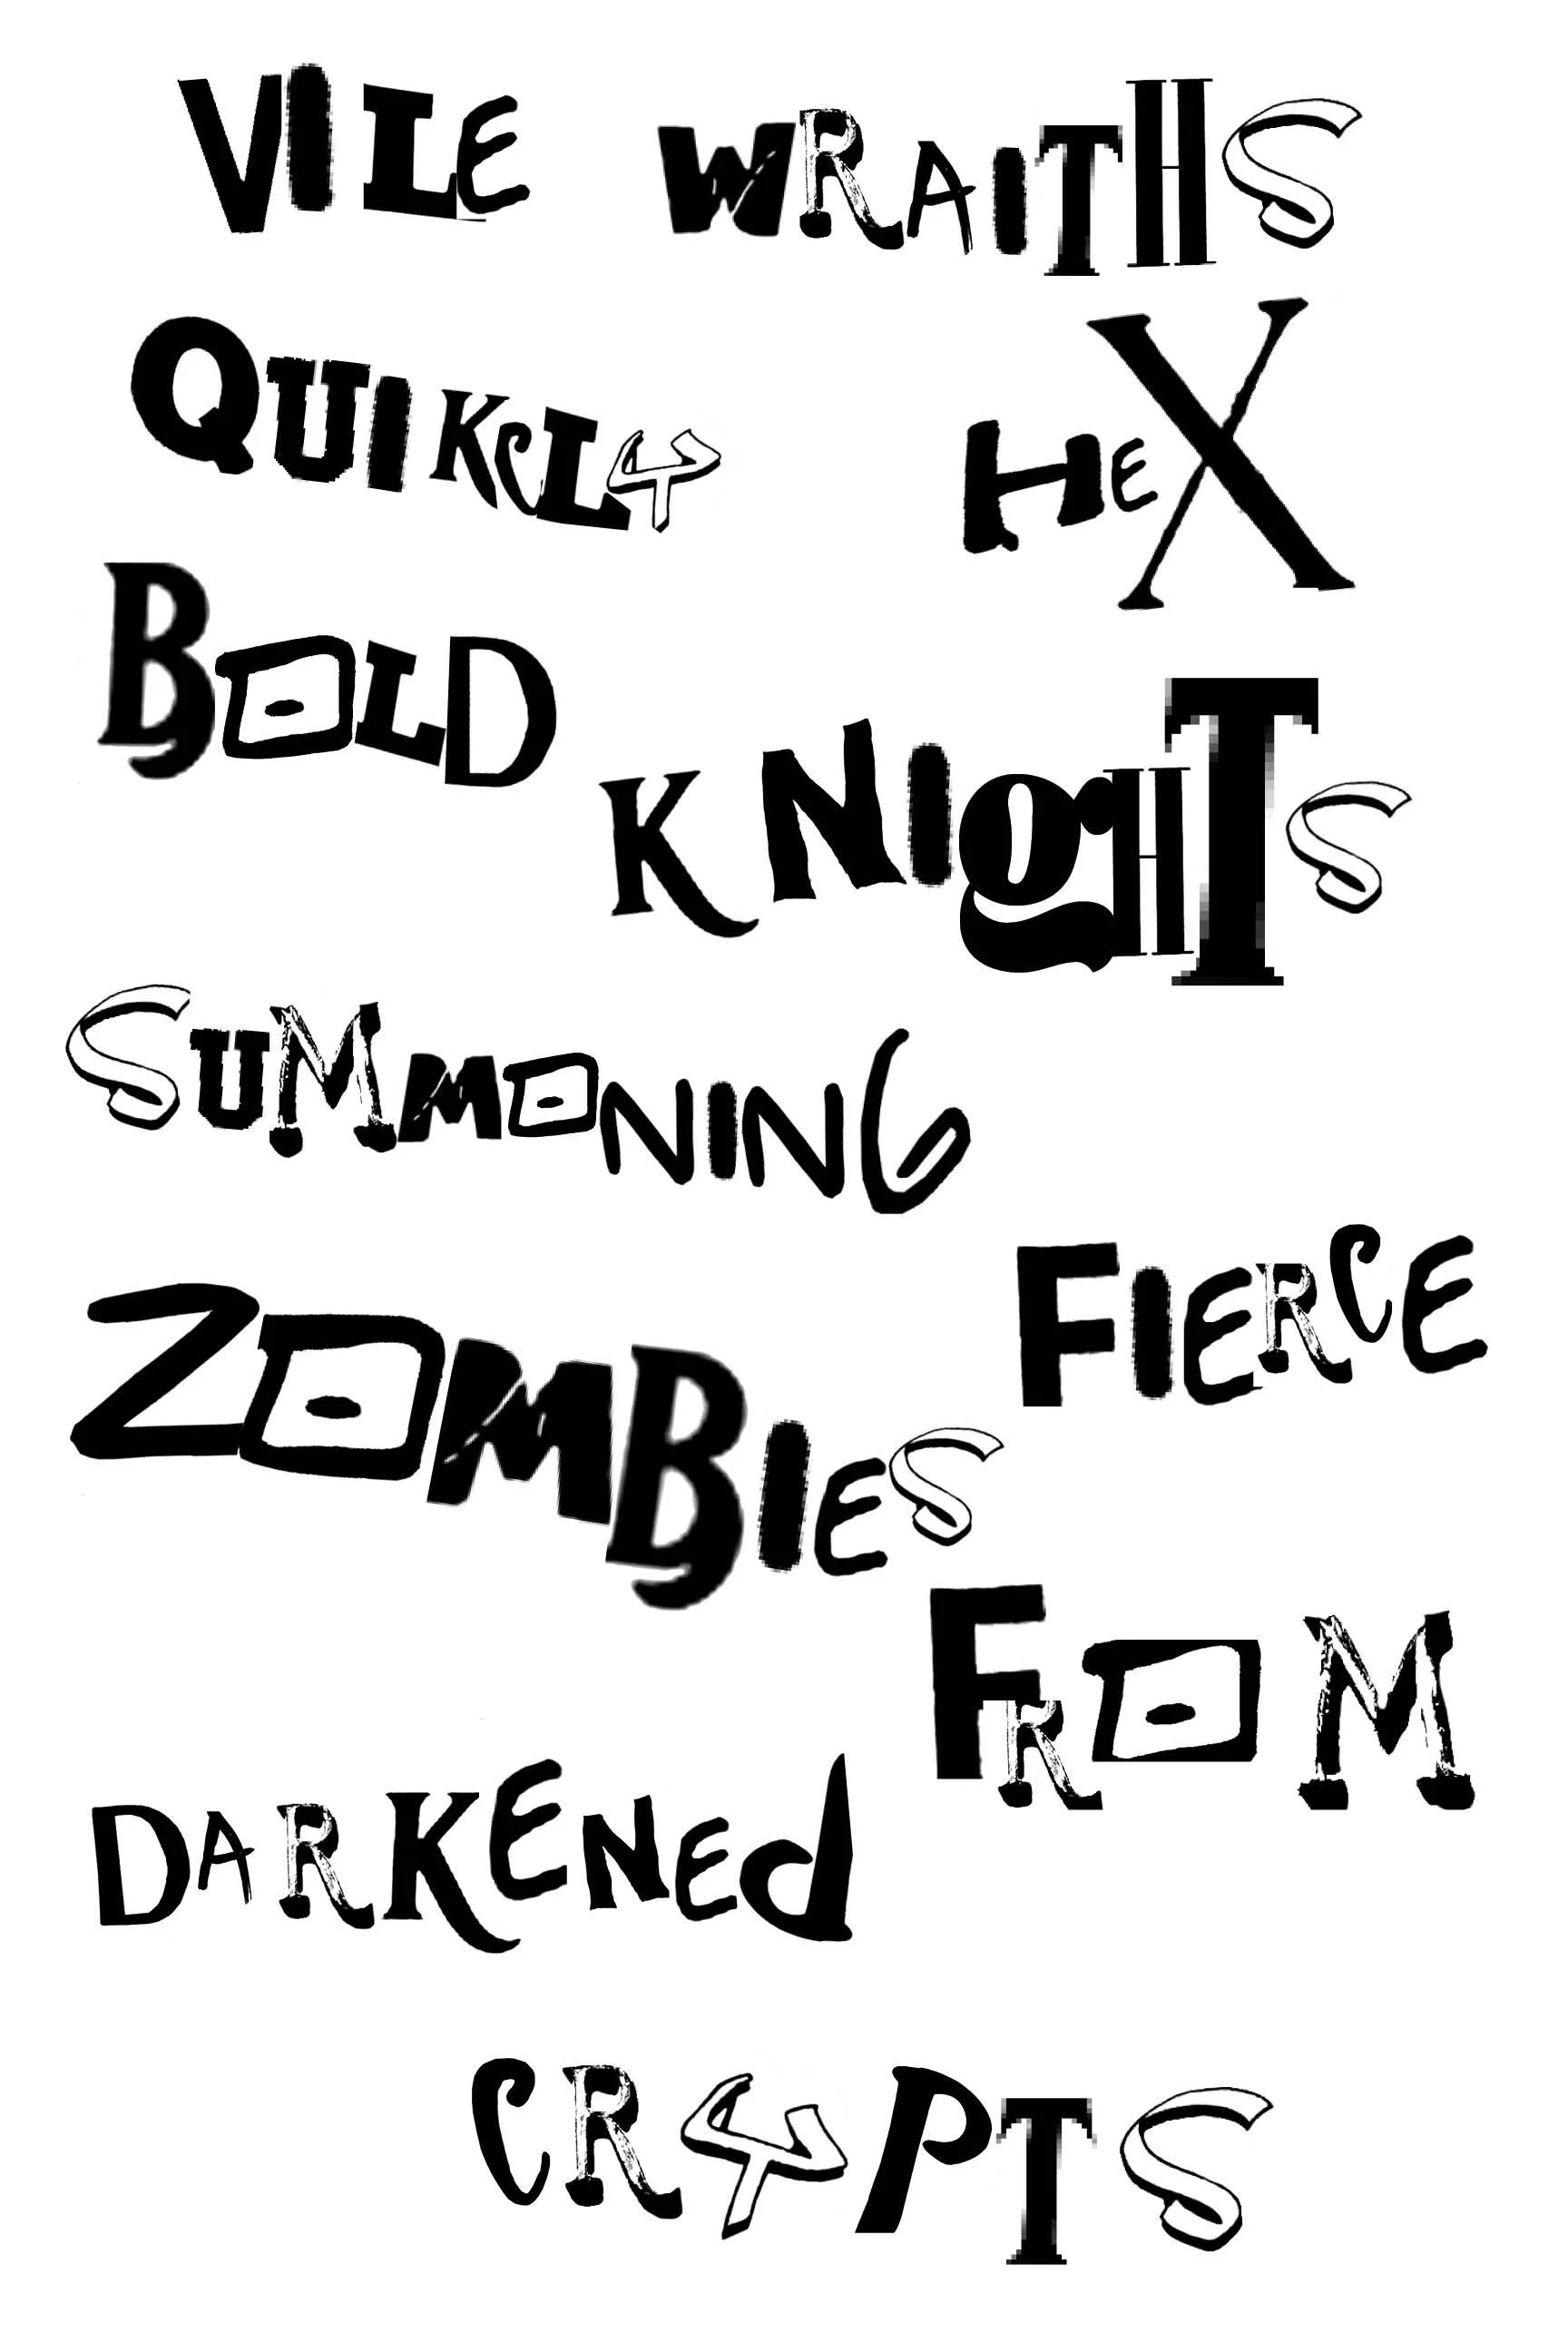 VILE WRAITHS
QUIKCLY HEX
BOLD
KNIgHTS
SUMMONING
FIERCE
ZOMBIES
FROM
DARKENEd
CRYPTS